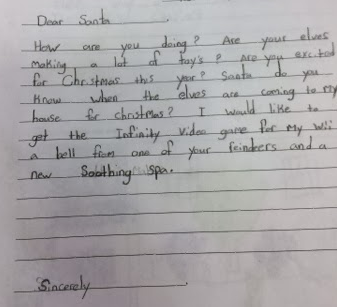 Dear Santa
How are you doing? Are your elves
making a lot of toy's? Are you exc.ted
for Christmas this year? Santa do you
Know when the elves are coming to my
house for christmas? I would like to
get the Infinity Video game for my wii
a bell from one of your feindeers and a
new Soothing spa.
Sincerely